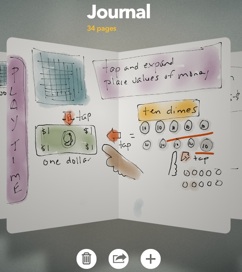 Journal
34 pages
PLAYTIME
tap and expand
place values of money
tap
$1 $1
$1 $1
one dollar
ten dimes
=
tap
10 10 10 10 10
10 10 10 10 10
tap